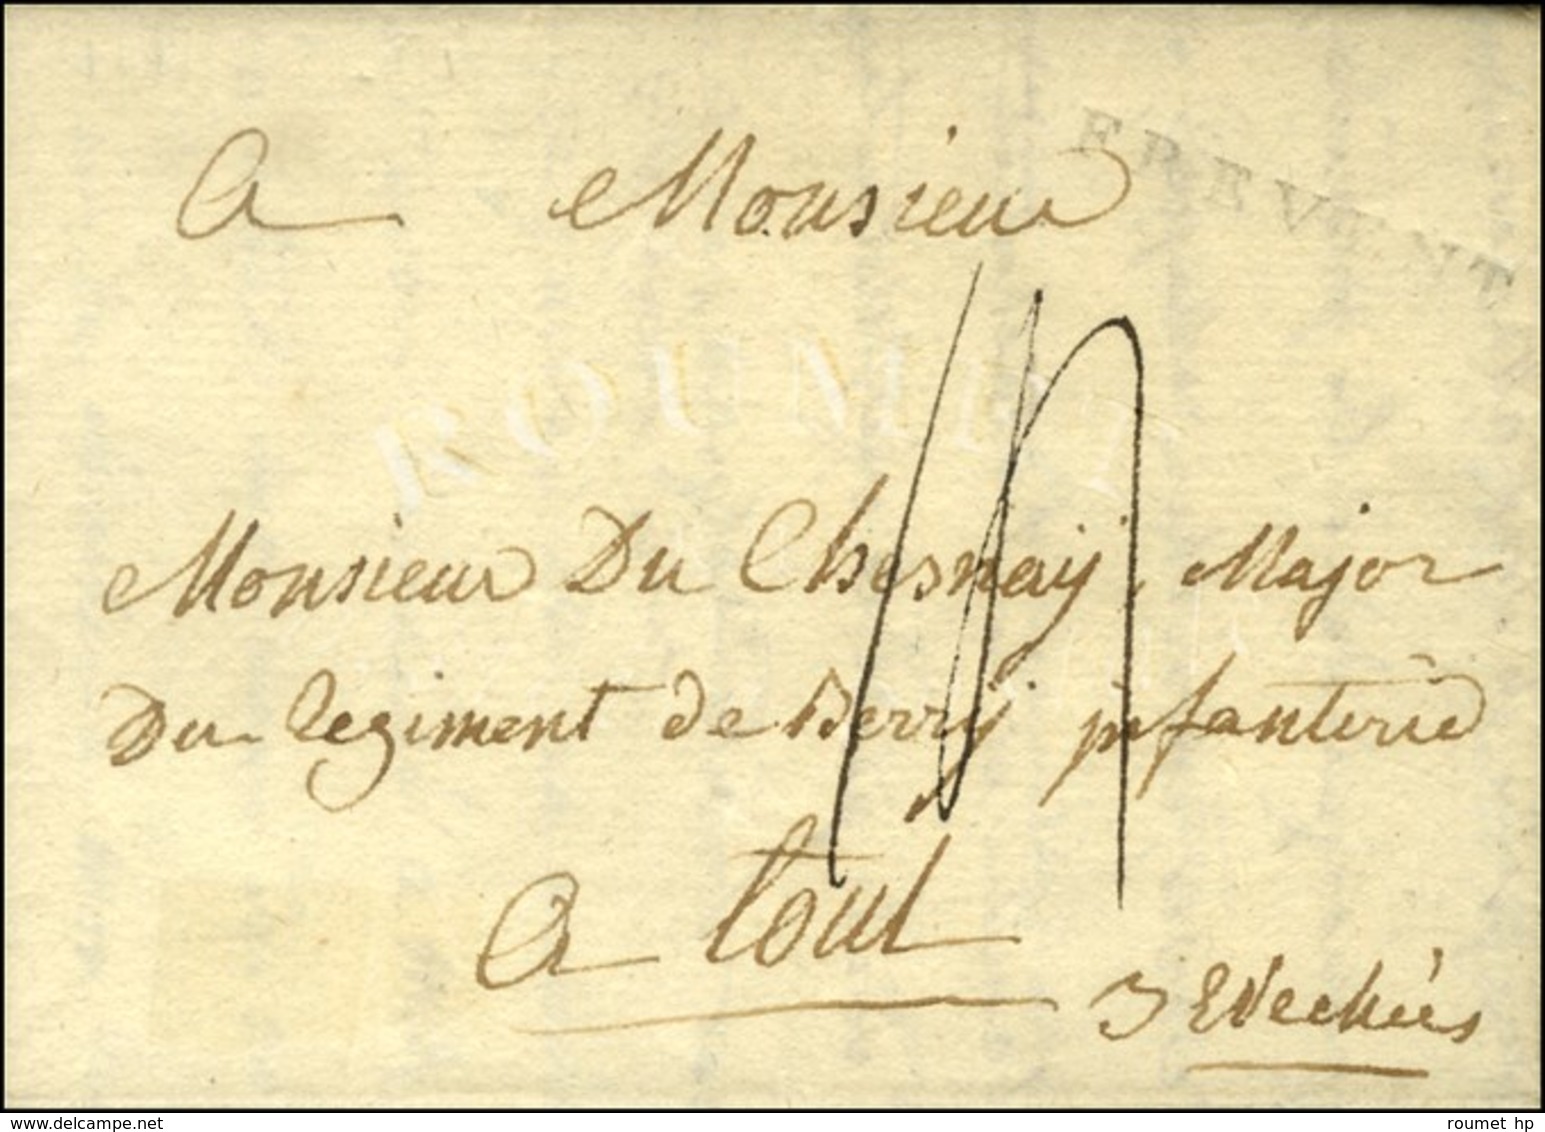 FREVENT
A Monsieur
ROUMET
Monsieur Du Chesnaÿ, Major
Du regiment de Berrÿ infanterie
A toul
3 Evechés
delcampe.net
roumet hp